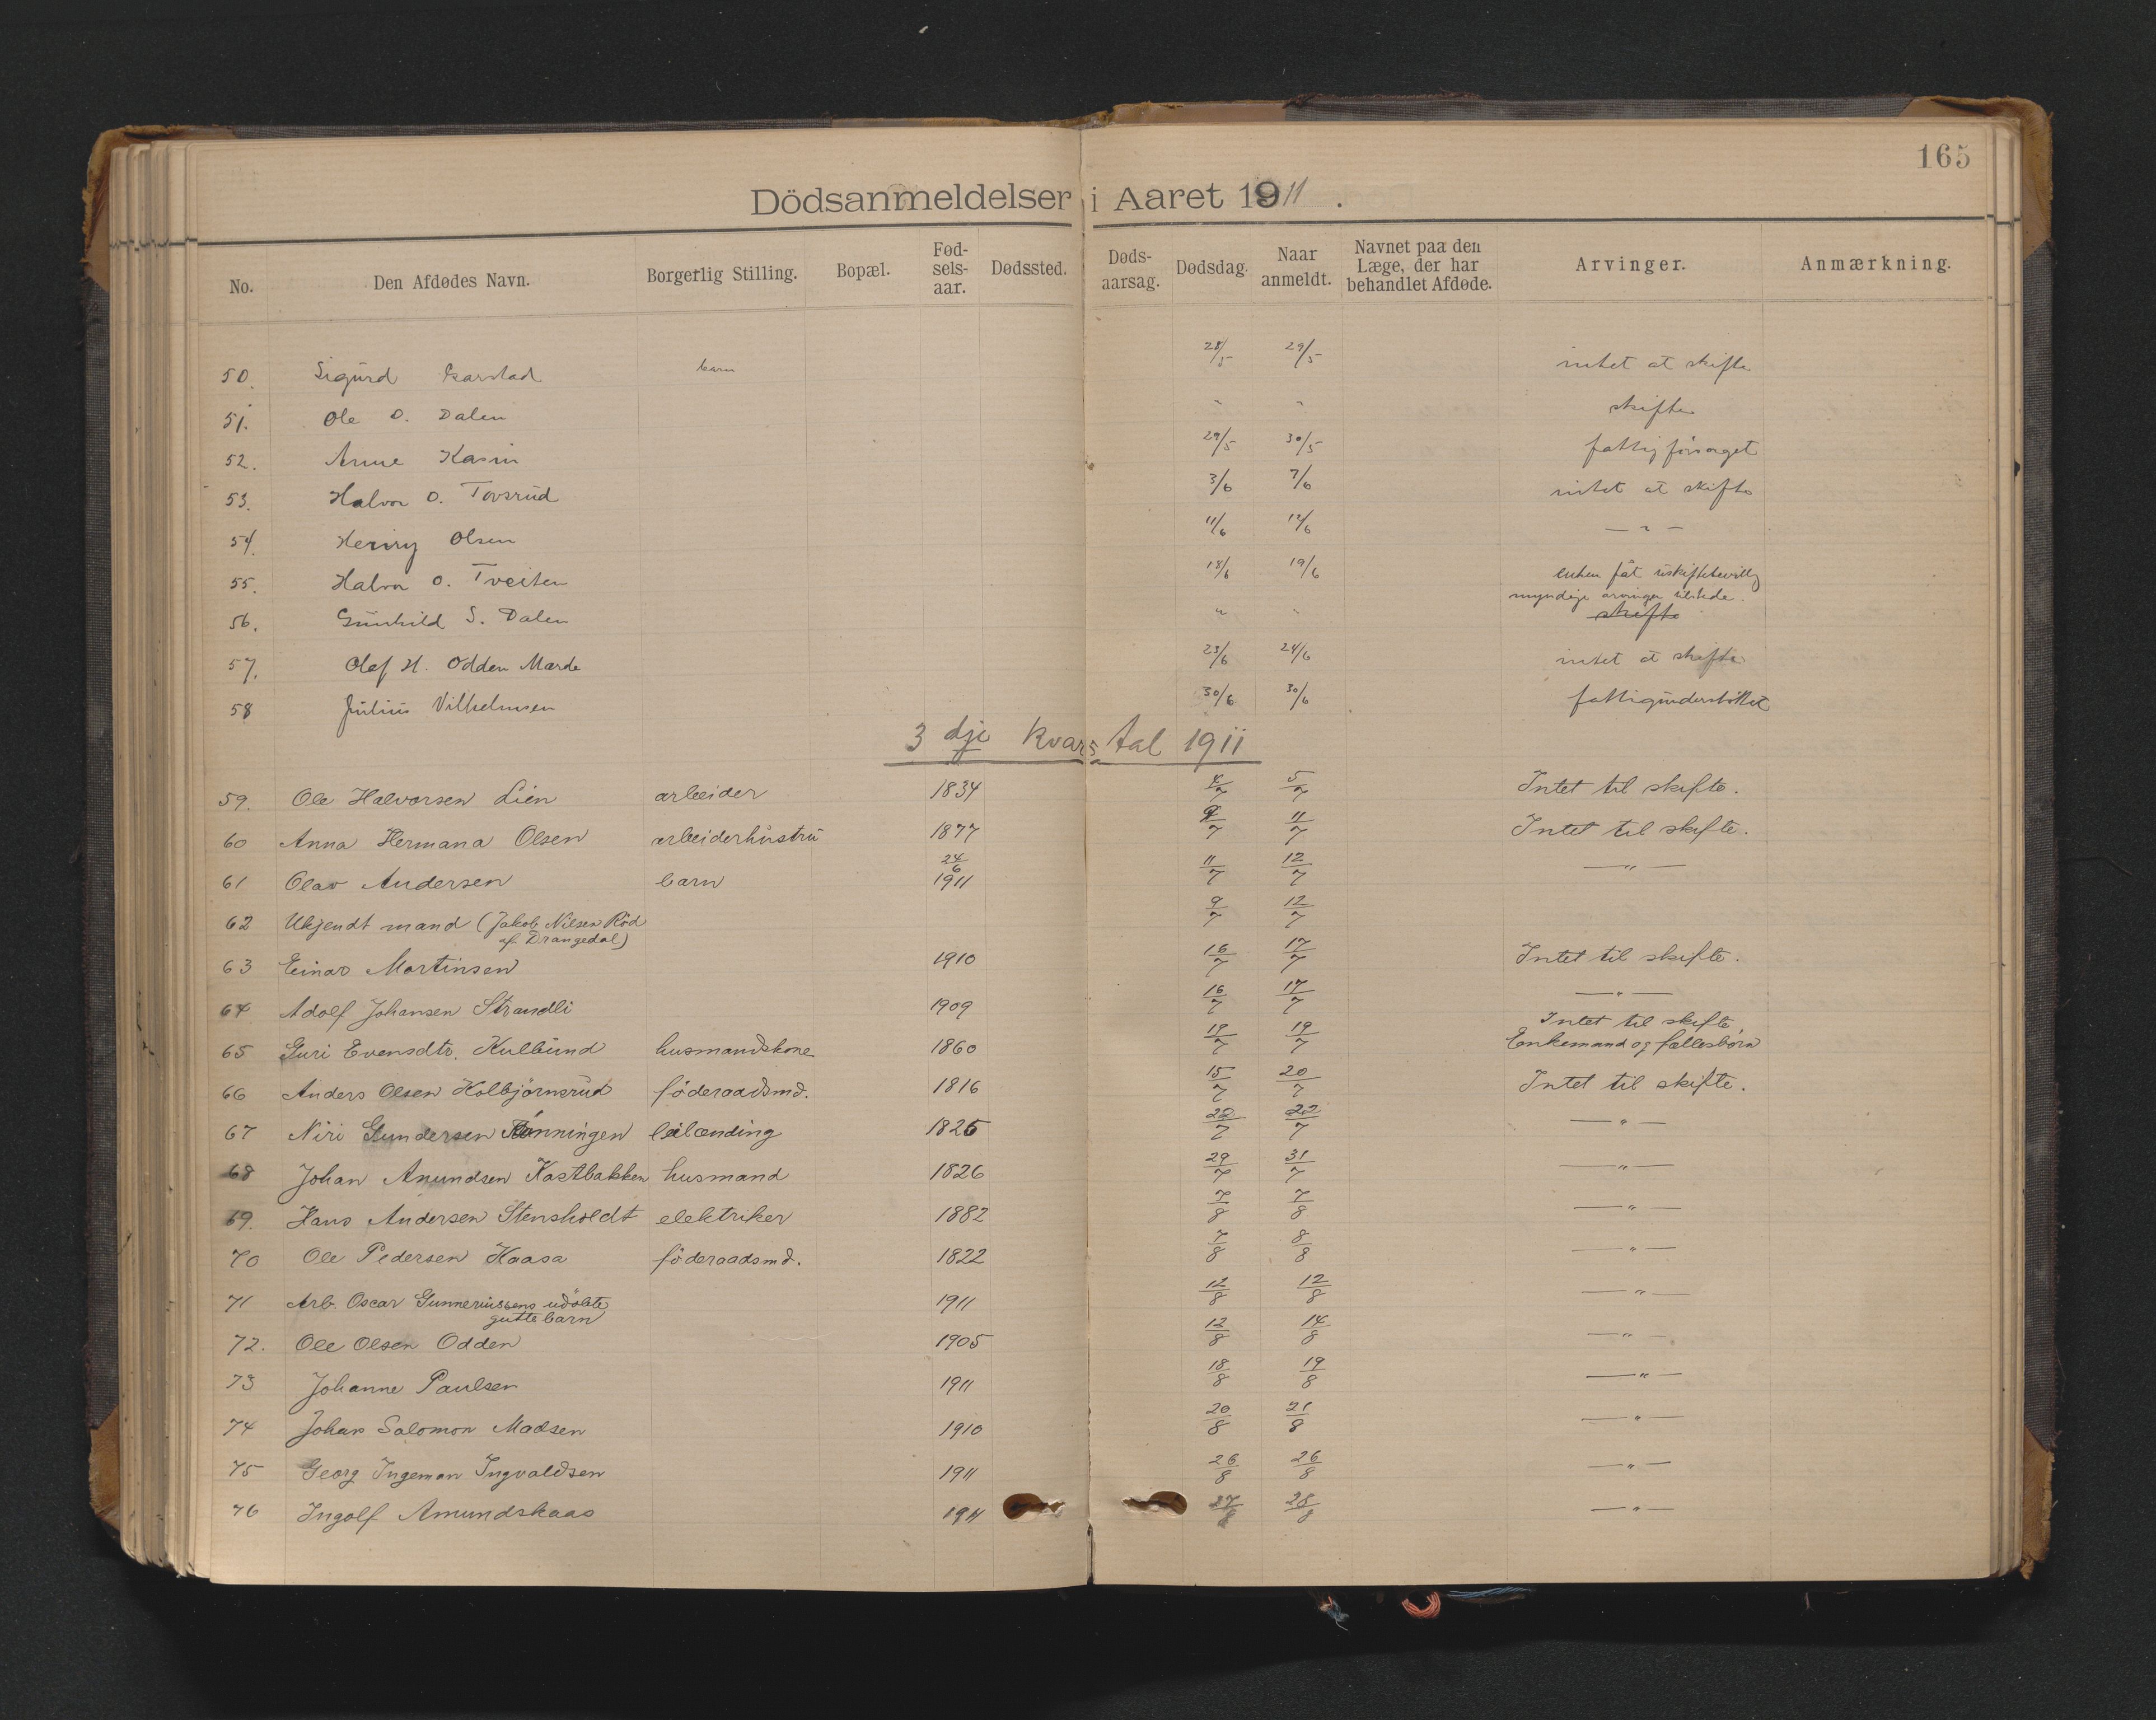 165
Dödsanmeldelser i Aaret 1911.
No. Den Afdødes Navn. Borgerlig Stilling. Bopæl. Fødselsaar. Dødssted. Dødsaarsag. Dødsdag. Naar anmeldt. Navnet paa den Læge, der har behandlet Afdøde. Arvinger. Anmærkning.
50. Sigurd barn 28/5 29/5 intet at skifte
51. Ole O. Dalen " " skifte
52. Anne Kasin 29/5 30/5 fattigforsørget
53. Halvor O. Tovsrud 3/6 7/6 intet at skifte
54. Henry Olsen 11/6 12/6 — " —
55. Halvor O. Tveiten 18/6 19/6 enken fåt uskiftebevillg
56. Gunhild S. Dalen " " myndige arvinger tilstede. skifte
57. Olef H. Odden Marde 23/6 24/6 intet at skifte
58 Julius Vilhelmsen 30/6 30/6 fattigunderstöttet
3 dje kvartal 1911
59. Ole Halvorsen Lien arbeider 1834 4/7 5/7 Intet til skifte.
60 Anna Hermana Olsen arbeiderhustru 1877 9/7 11/7 Intet til skifte.
61 Olav Andersen barn 24/6 1911 11/7 12/7 — " —
62 Ukjendt mand (Jakob Nilsen Röd af Drangedal) 9/7 12/7
63 Einar Martinsen 1910 16/7 17/7 Intet til skifte.
64 Adolf Johansen Strandli 1909 16/7 17/7 — " —
65 Guri Evensdtr. Kulbund husmandskone 1860 19/7 19/7 Intet til skifte, Enkemand og fællesbørn
66 Anders Olsen Kolbjörnsrud föderaadsmd. 1816 15/7 20/7 Intet til skifte.
67 Niri Gundersen Rönningen leilænding 1826 22/7 22/7 — " —
68 Johan Amundsen Kastbakken husmand 1826 29/7 31/7 — " —
69. Hans Andersen Stensholdt elektriker 1882 7/8 7/8 — " —
70 Ole Pedersen Haasa föderaadsmd. 1822 7/8 8/8 — " —
71 Arb. Oscar Gunneriussens udöbte guttebarn 1911 12/8 12/8 — " —
72. Ole Olsen Odden 1905 12/8 14/8 — " —
73 Johanne Paulsen 1911 18/8 19/8 — " —
74 Johan Salomon Madsen 1910 20/8 21/8 — " —
75 Georg Ingeman Ingvaldsen 1911 26/8 26/8 — " —
76 Ingolf Amundskaas 1911 27/8 28/8 — " —